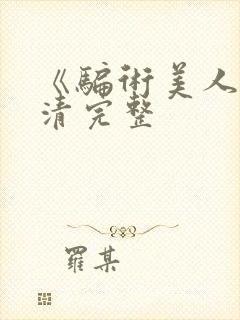 《騙術美人
清完整
羅某